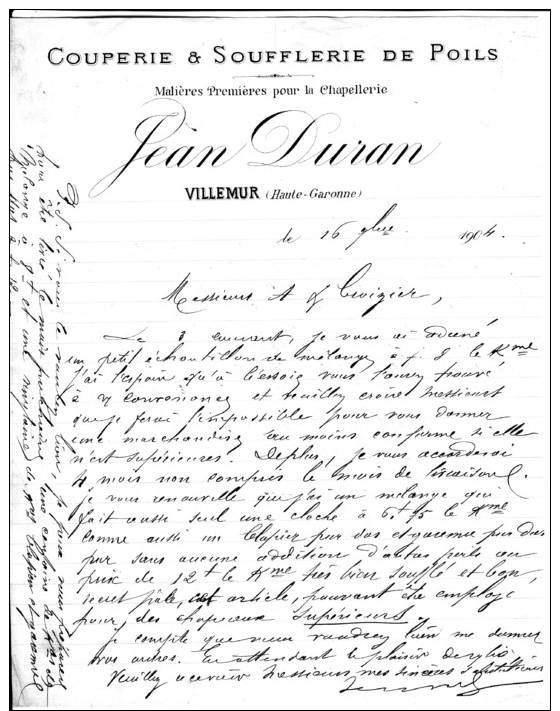 COUPERIE & SOUFFLERIE DE POILS
Matières Premières pour la Chapellerie
Jean Duran
VILLEMUR (Haute-Garonne)
le 16 9bre 1904.
Messieurs A & Crozier,
Le 3 courant, je vous ai adressé
un petit échantillon de mélange à f. 8 le Kme
j'ai l'espoir qu'à l'essai vous l'aurez trouvé
à Vr convenance et veuillez croire Messieurs
que je ferai l'impossible pour vous donner
une marchandise au moins conforme si elle
n'est supérieure. De plus, je vous accorderai
4 mois non compris le mois de livraison.
je vous renouvelle que j'ai un mélange qui
fait aussi seul une cloche à 6f 75 le Kme
comme aussi un Clapier pur dos et garenne pur dos
pur sans aucune addition d'autres poils au
prix de 12f le Kme très bien soufflé et bon,
secret pâle, cet article, pouvant être employé
pour des chapeaux supérieurs.
je compte que vous voudrez bien me donner
vos ordres. En attendant le plaisir
Veuillez agréer Messieurs, mes sincères salutations
P.S. Si vous le vouliez bien, je puis vous
pour être livré le mois prochain, une centaine de Kilos
mélange à 8f et une vingtaine de gros Clapier et garenne